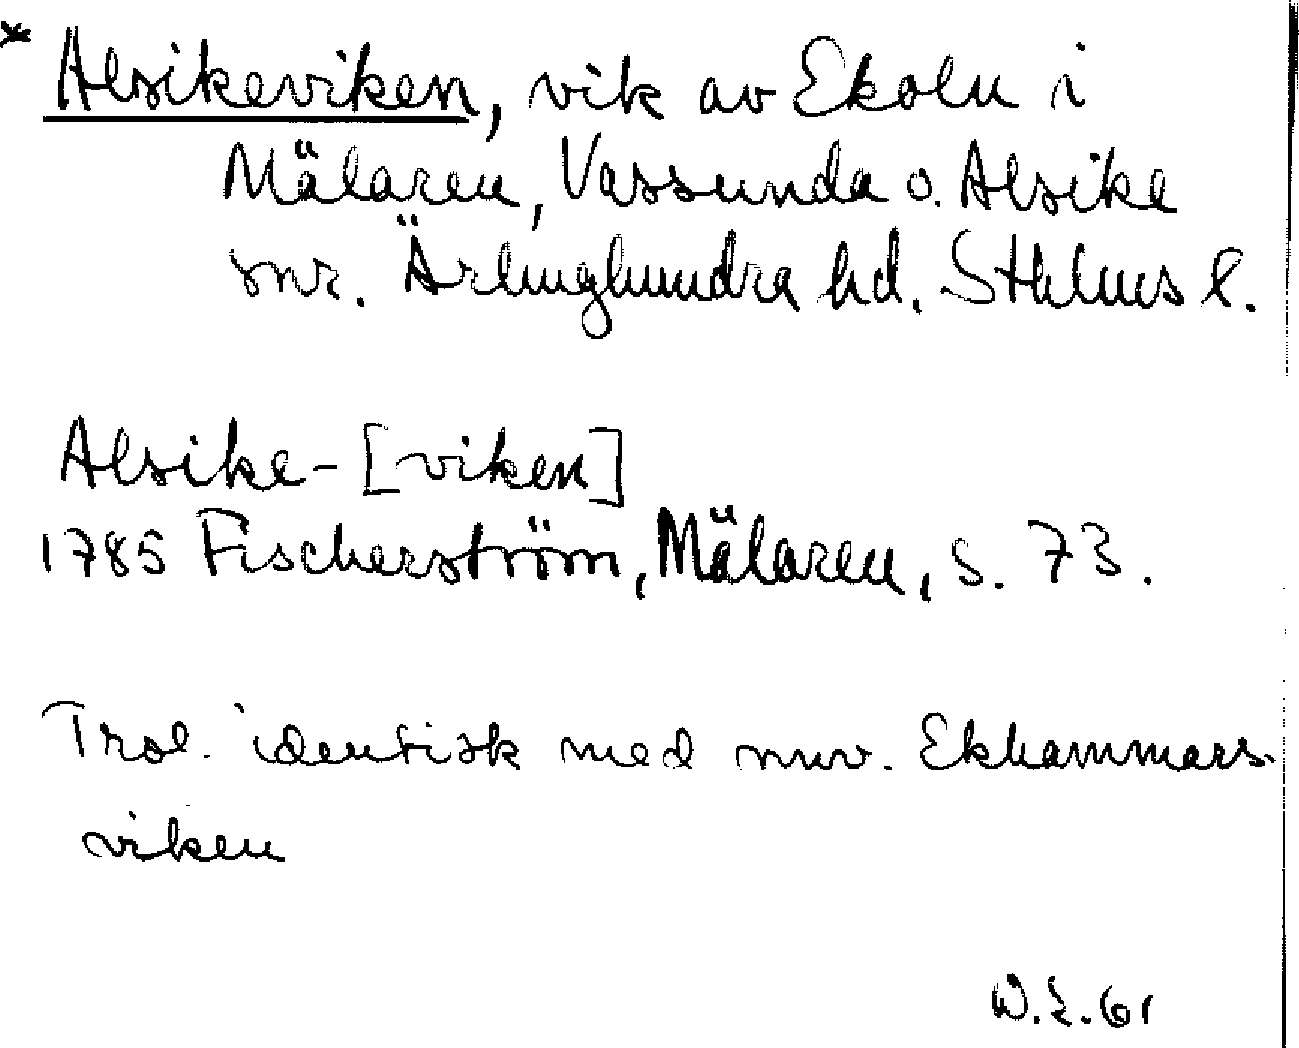 * Alsikeviken, vik av Ekoln i
Mälaren, Vassunda o. Alsike
snr. Ärlinghundra hd. Sthlms l.
Alsike-[viken]
1785 Fischerström, Mälaren, s. 73.
Trol. identisk med nuv. Ekhammars-
viken
W.L. 61